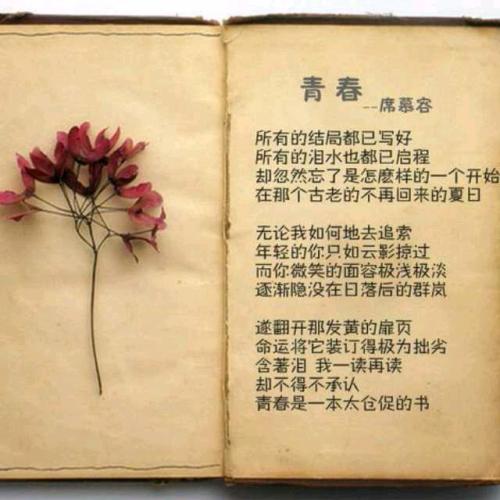 青春
--席慕容
所有的结局都已写好
所有的泪水也都已启程
却忽然忘了是怎麽样的一个开始
在那个古老的不再回来的夏日
无论我如何地去追索
年轻的你只如云影掠过
而你微笑的面容极浅极淡
逐渐隐没在日落后的群岚
遂翻开那发黄的扉页
命运将它装订得极为拙劣
含著泪 我一读再读
却不得不承认
青春是一本太仓促的书